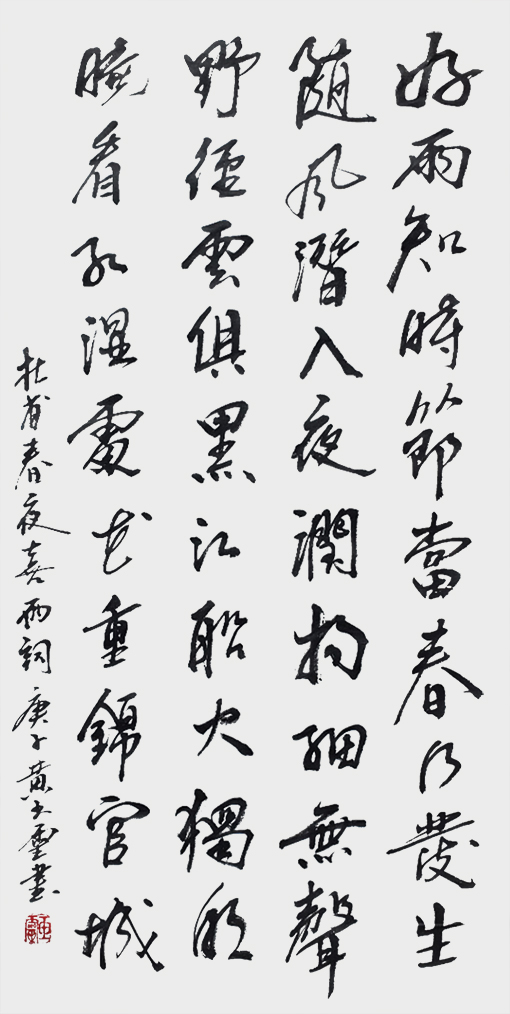 好雨知時節當春乃發生
随風潛入夜潤物細無聲
野徑雲俱黑江船火獨明
曉看紅湿處花重錦官城
杜甫春夜喜雨詞 庚子黃